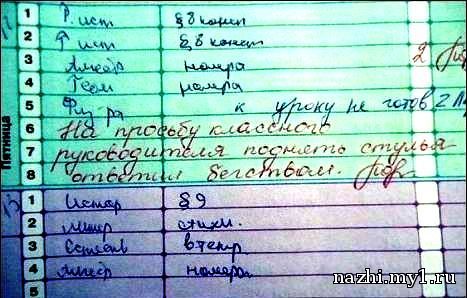 1 Р. ист § 8 консп
2 Р ист § 8 консп
3 Алгебр номра 2
4 Геом номра
5 Физ ра к уроку не готов 2
6 На просьбу классного
7 руководителя поднять стулья
8 ответил бегством.
Пятница
1 Истор § 9
2 Литер стихи.
3 в тетр
4 Алгебр номера
5
nazhi.my1.ru